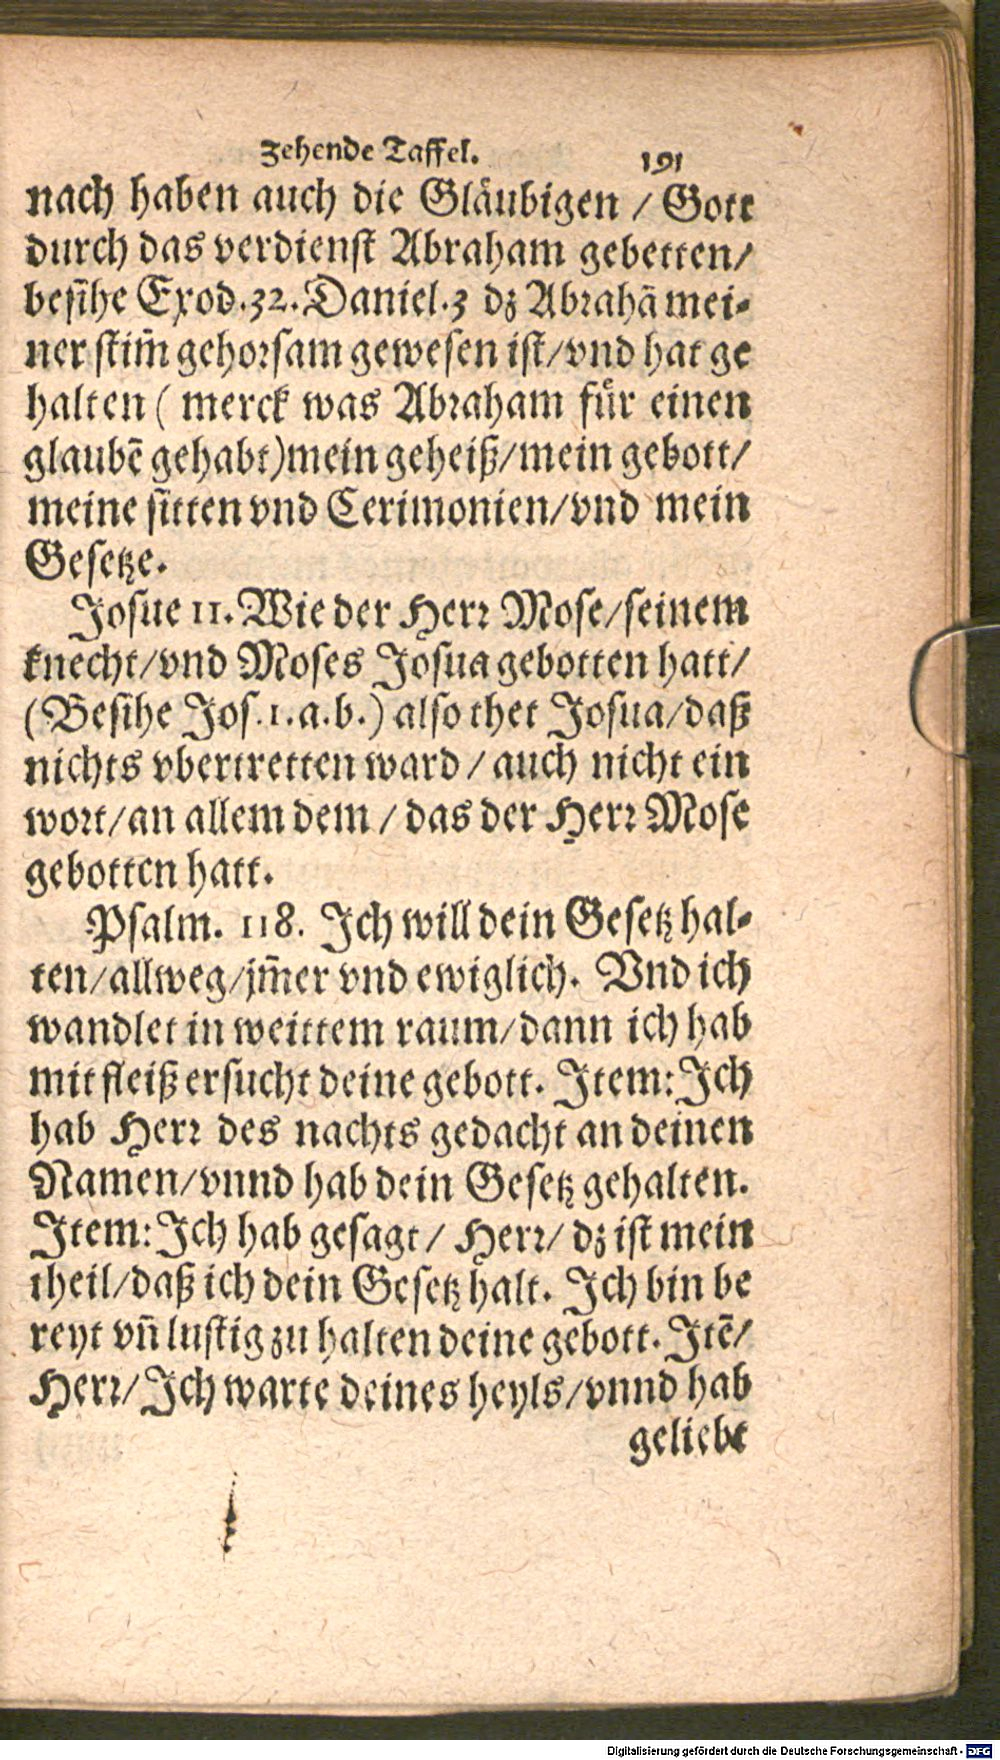 Zehende Taffel. 191
nach haben auch die Gläubigen / Gott
durch das verdienst Abraham gebetten/
besihe Exod. 32. Daniel. 3 dz Abrahā mei-
ner stim̄ gehorsam gewesen ist/vnd hat ge
halten ( merck was Abraham für einen
glaubē gehabt)mein geheiß/mein gebott/
meine sitten vnd Cerimonien/vnd mein
Gesetze.
Josue 11. Wie der Herr Mose/seinem
knecht/vnd Moses Josua gebotten hatt/
(Besihe Jos. 1. a. b.) also thet Josua/daß
nichts vbertretten ward / auch nicht ein
wort/an allem dem / das der Herr Mose
gebotten hatt.
Psalm. 118. Ich will dein Gesetz hal-
ten/allweg/jm̄er vnd ewiglich. Vnd ich
wandlet in weittem raum/dann ich hab
mit fleiß ersucht deine gebott. Item: Ich
hab Herr des nachts gedacht an deinen
Namen/vnnd hab dein Gesetz gehalten.
Item: Ich hab gesagt / Herr/ dz ist mein
theil/daß ich dein Gesetz halt. Ich bin be
reyt vn̄ lustig zu halten deine gebott. Itē/
Herr/ Ich warte deines heyls/vnnd hab
geliebt
Digitalisierung gefördert durch die Deutsche Forschungsgemeinschaft - DFG